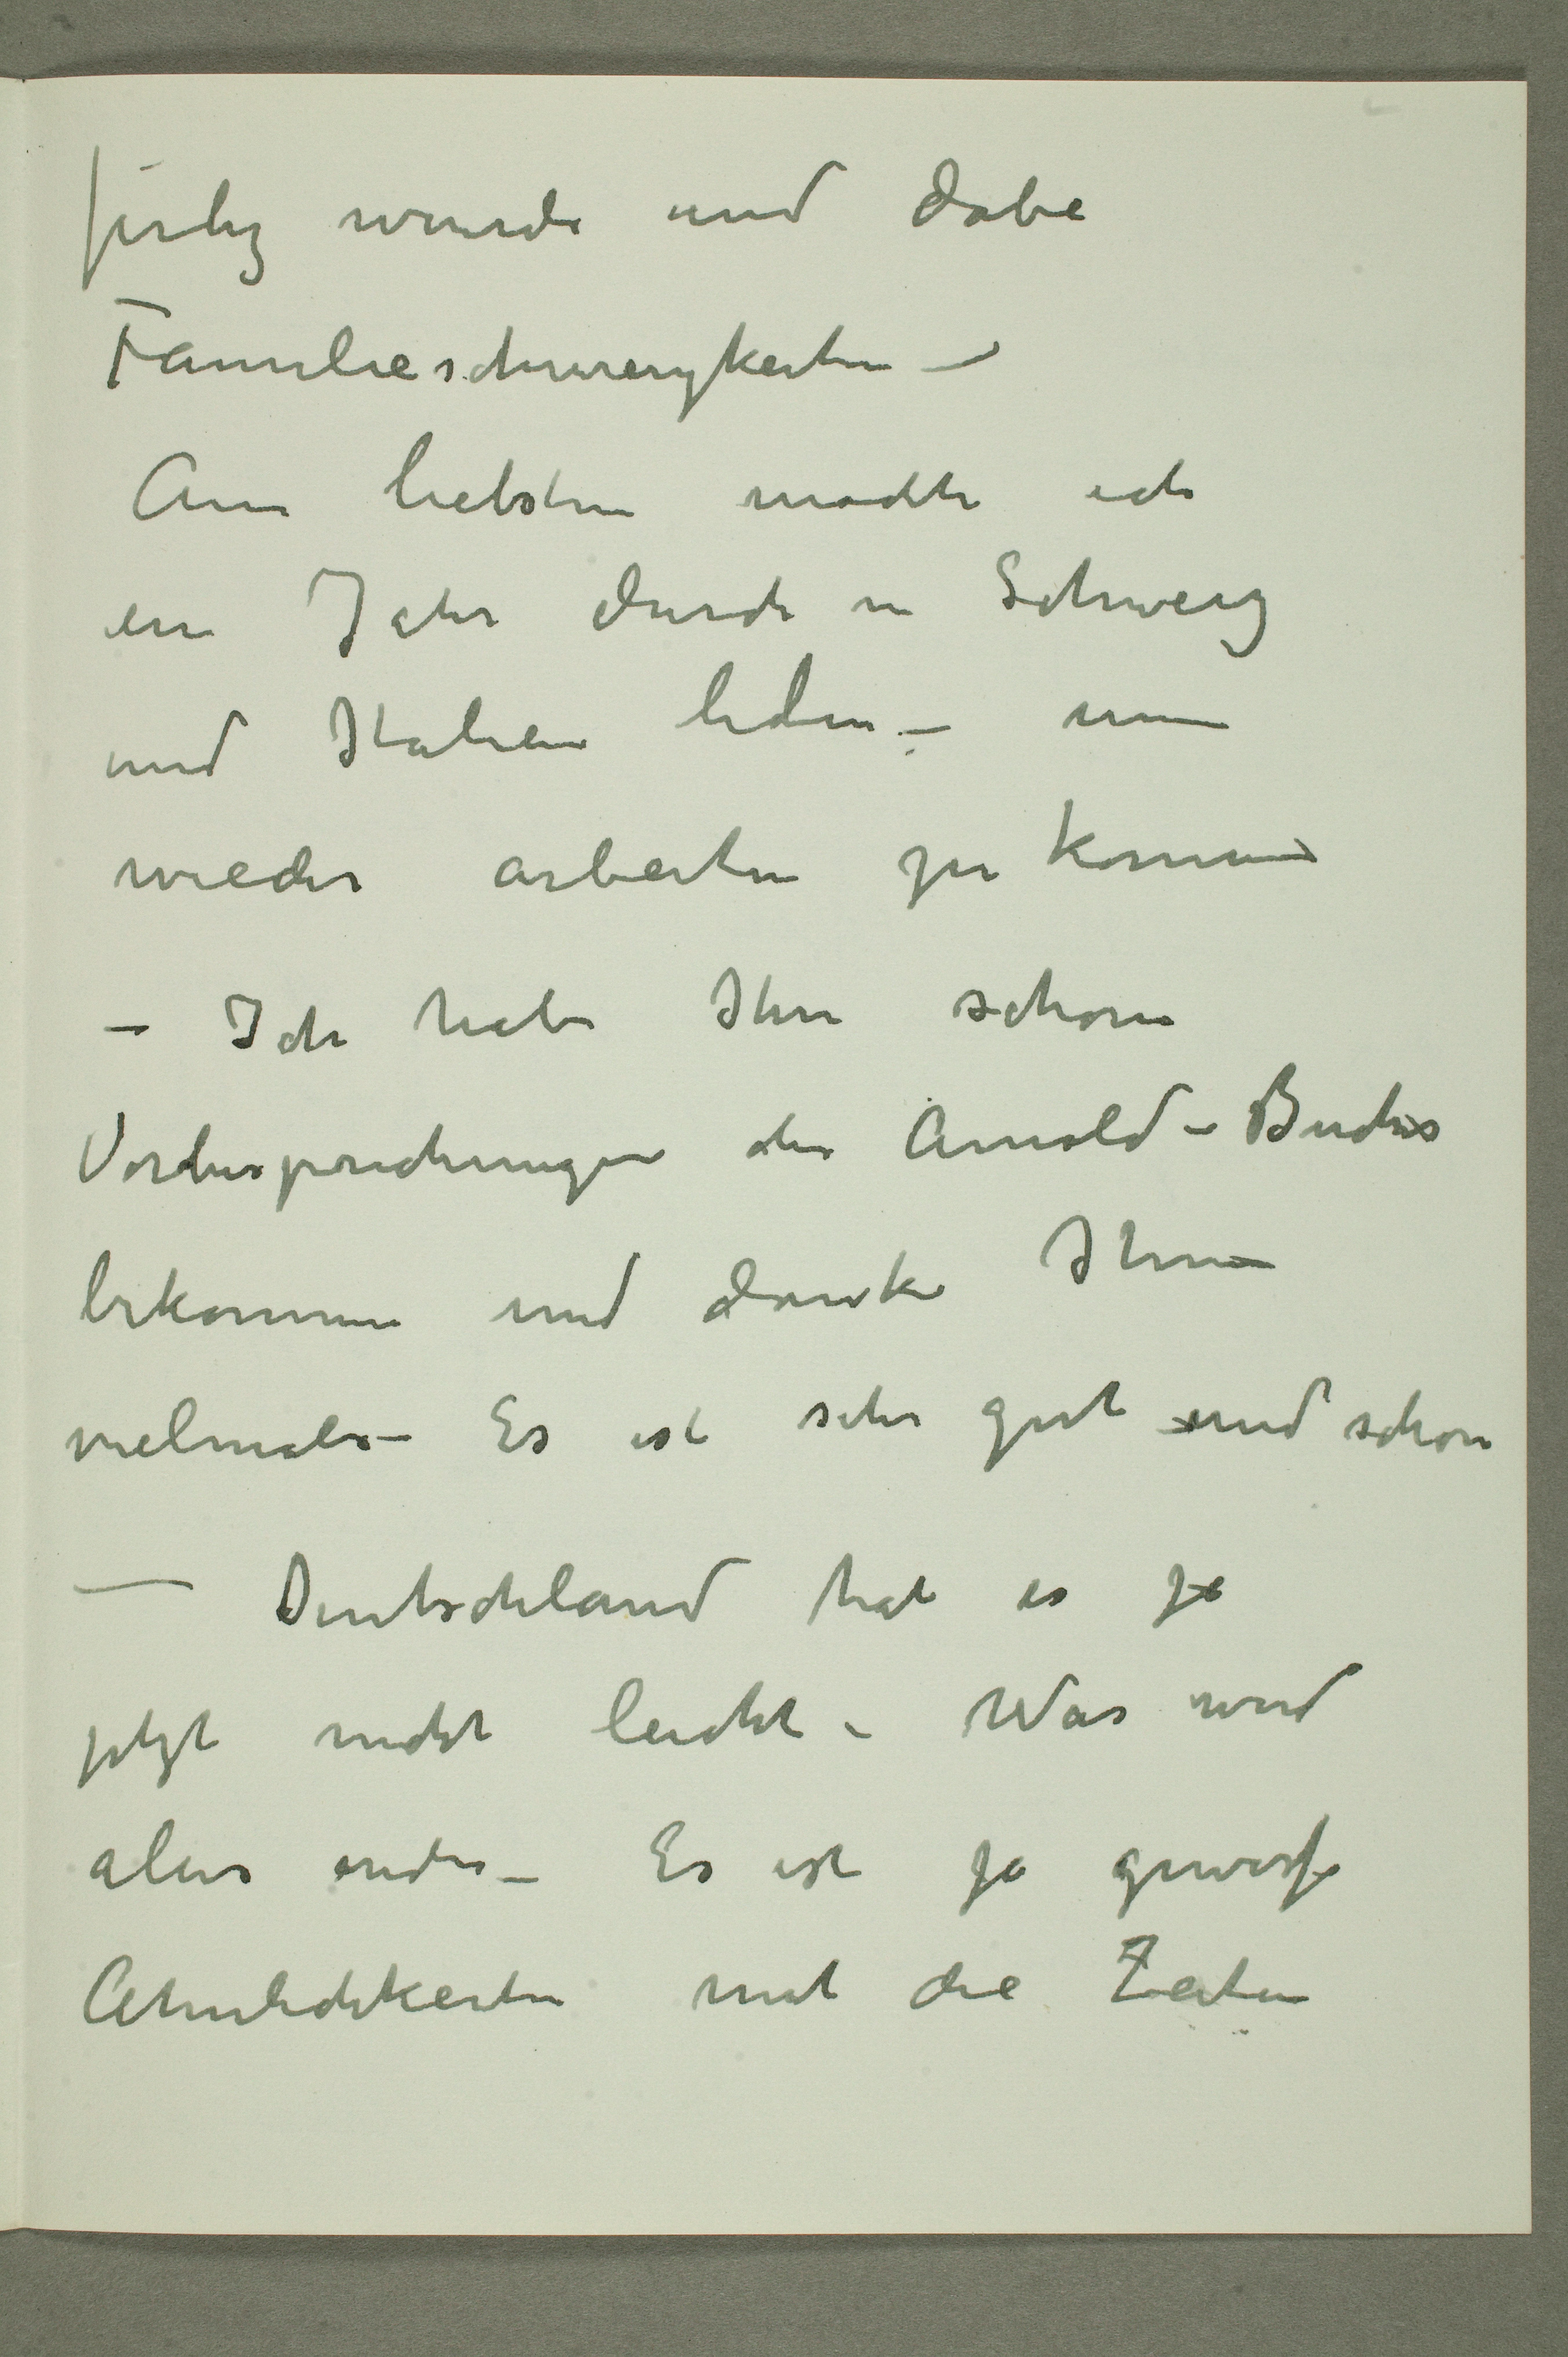 fertig wurde und dabe
Familieschwierigkeiten –
Am liebsten möchte ich
ein Jahr durch in Schweiz
und Italien leben – um
wieder arbeiten zu kommen
– Ich habe Ihre schöne
Vorbesprechungen des Arnold-Buches
bekommen und danke Ihnen
vielmals – Es ist sehr gut und schön
– Deutschland hat es ja
jetzt nicht leicht – Was wird
alles enden – Es ist ja gewisse
Ähnlichkeiten mit die Zeiten